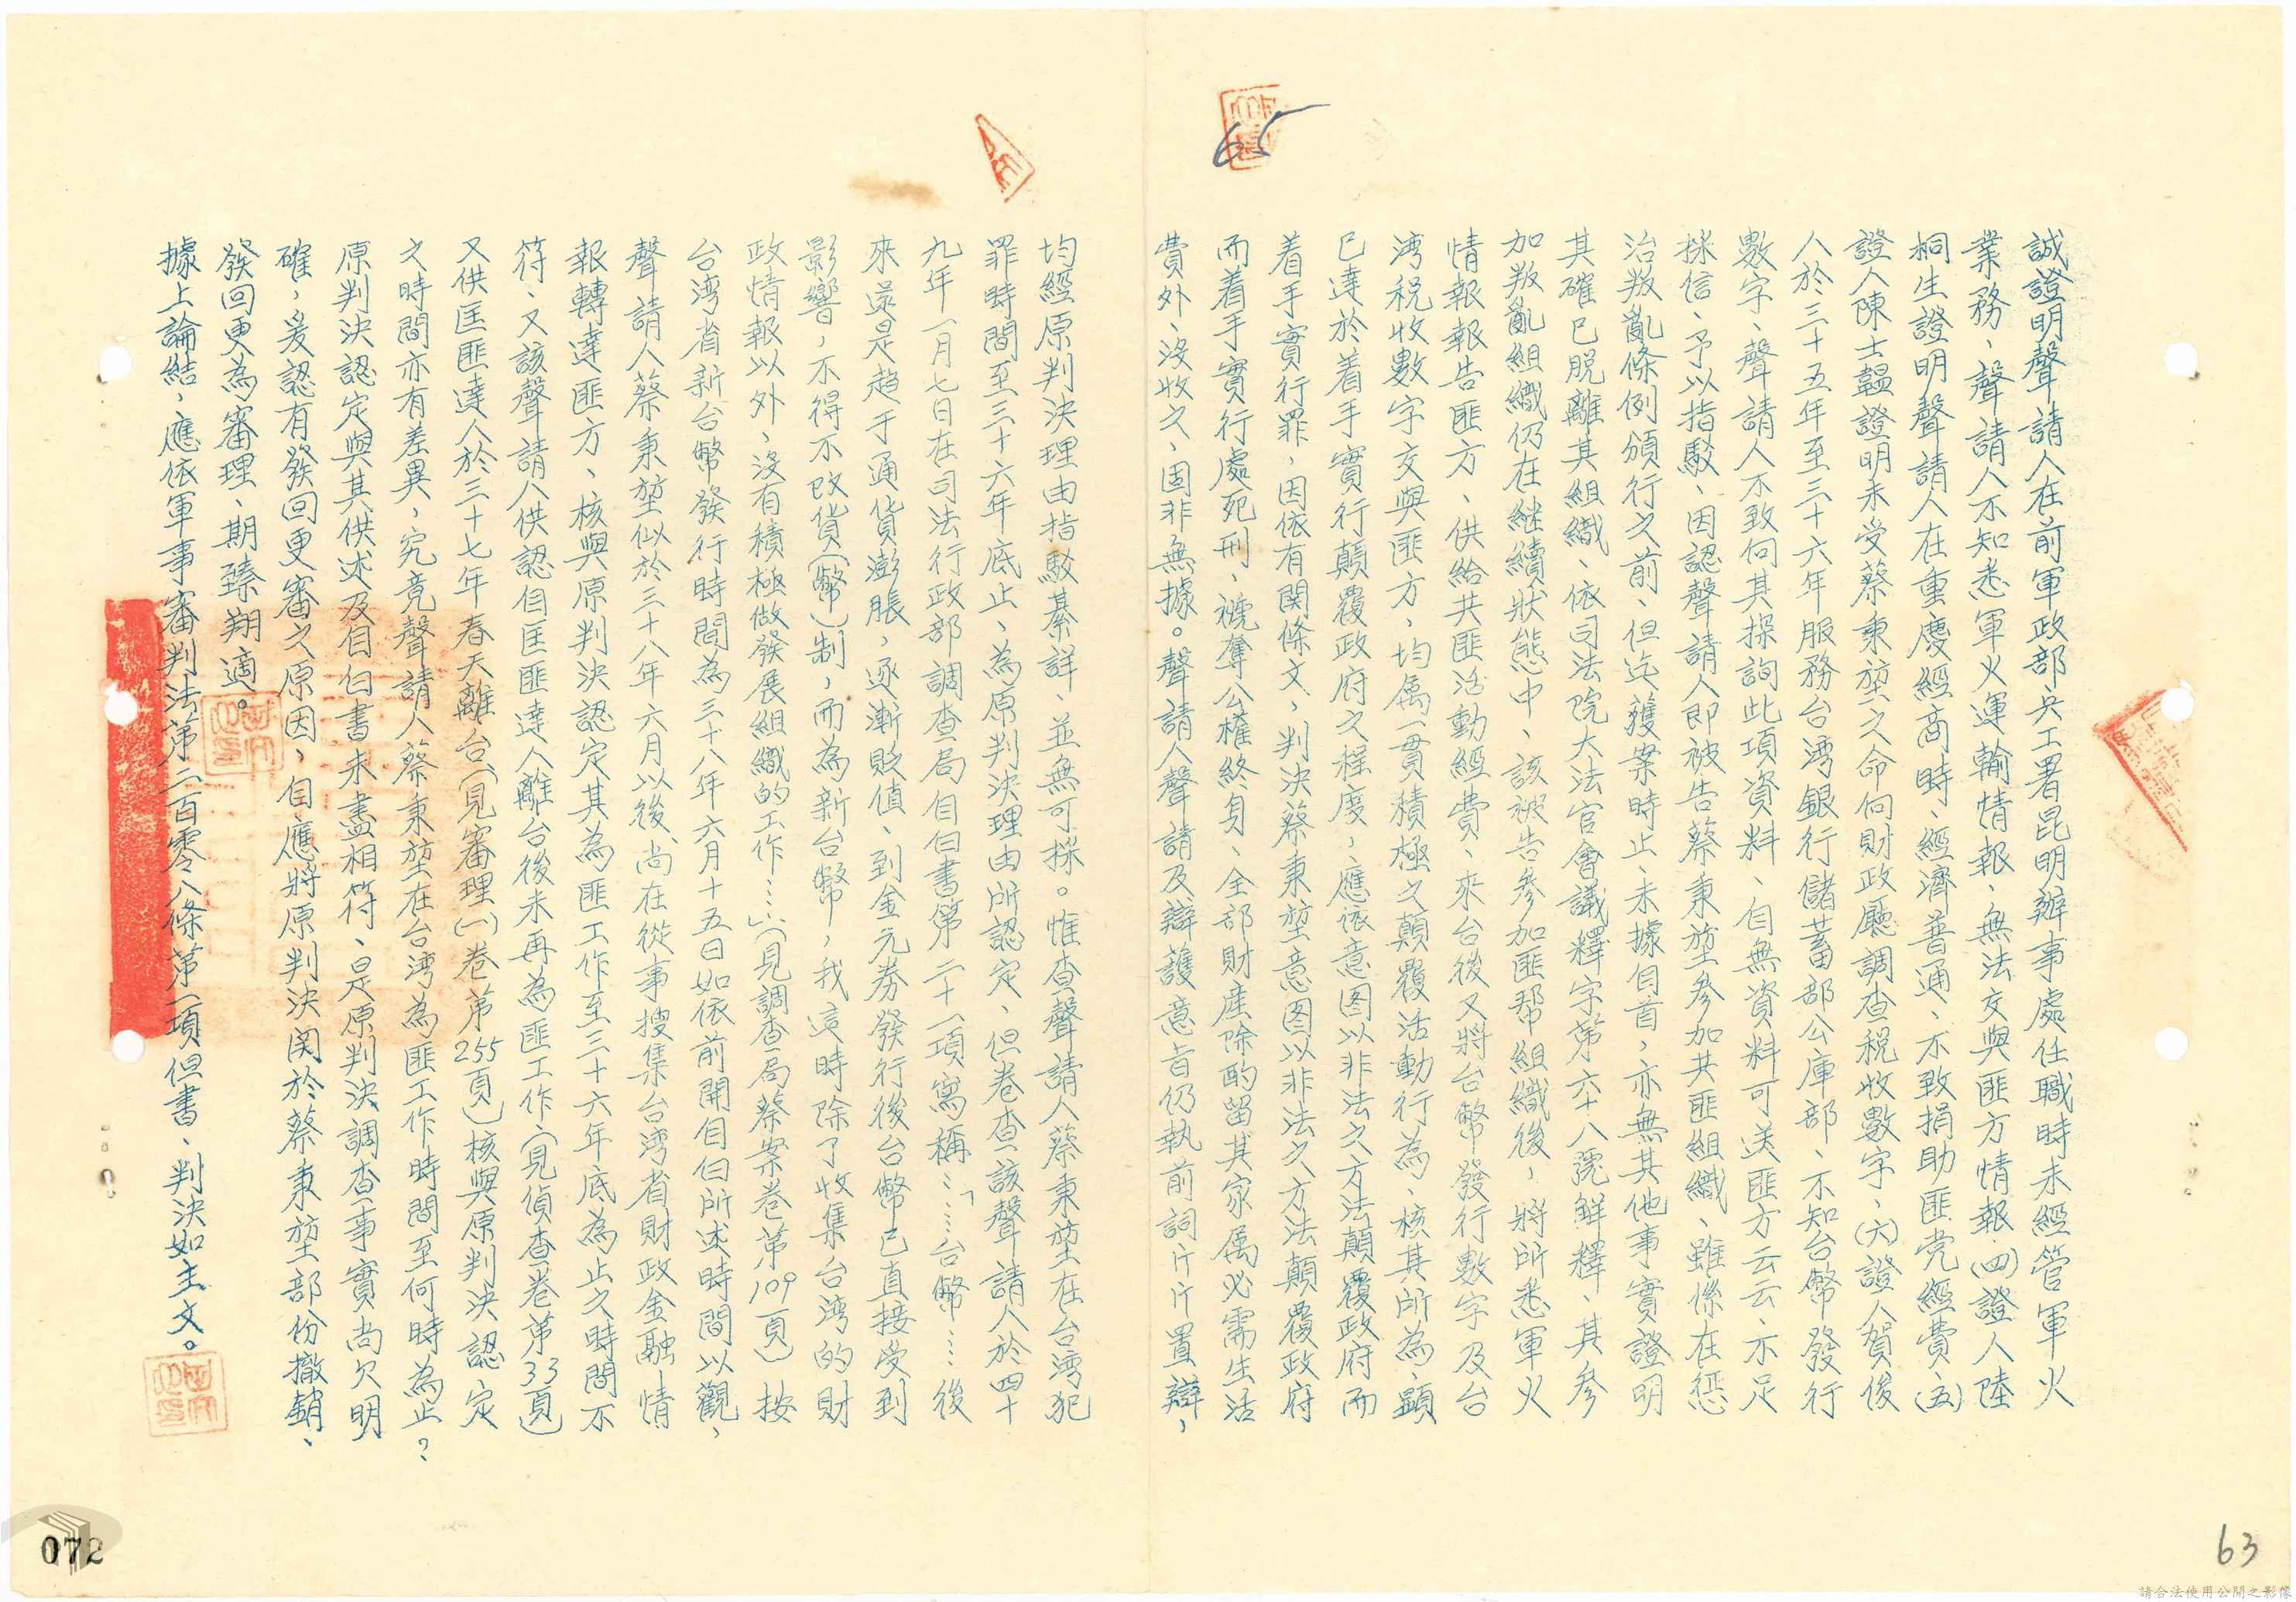 誠證明聲請人在前軍政部兵工署昆明辦事處任職時未經管軍火
業務、聲請人不知悉軍火運輸情報、無法交與匪方情報(四)證人陸
桐生證明聲請人在重慶經商時、經濟普通、不致捐助匪党經費(五)
證人陳士韞證明未受蔡秉堃之命向財政廳調查稅收數字、(六)證人賀俊
人於三十五年至三十六年服務台湾銀行儲蓄部公庫部、不知台幣發行
數字、聲請人不致向其探詢此項資料、自無資料可送匪方云云、亦足
採信、予以指駁、因認聲請人即被告蔡秉堃參加共匪組織、雖係在惩
治叛亂條例頒行之前、但迄獲案時止、未據自首，亦無其他事實證明
其確已脫離其組織、依司法院大法官會議釋字第六十八號解釋、其參
加叛亂組織仍在継續狀態中、該被告參加匪帮組織後，將所悉軍火
情報報告匪方、供給共匪活動經費、來台後又將台幣發行數字及台
湾稅收數字交與匪方，均属一貫積極之顛覆活動行為、核其所為、顕
已達於着手實行顛覆政府之程度，應依意图以非法之方法顛覆政府而
着手實行罪，因依有関條文，判決蔡秉堃意图以非法之方法顛覆政府
而着手實行處死刑、褫奪公權終身、全部財產除酌留其家属必需生活
費外、沒收之、固非無據。聲請人聲請及辯護意旨仍執前詞斤斤置辯，
65
均經原判決理由指駁綦詳、並無可採。惟查聲請人蔡秉堃在台湾犯
罪時間至三十六年底止、為原判決理由所認定、但卷查該聲請人於四十
九年一月七日在司法行政部調查局自白書第二十一項寫稱:「……台幣……後
來還是趋于通貨澎脹，逐漸貶值、到金元券發行後台幣已直接受到
影響，不得不改貨(幣)制，而為新台幣，我這時除了收集台湾的財
政情報以外、沒有積極做發展組織的工作……」(見調查局蔡案卷第109頁)按
台湾省新台幣發行時間為三十八年六月十五日如依前開自白所述時間以觀，
聲請人蔡秉堃似於三十八年六月以後、尚在從事搜集台湾省財政金融情
報轉達匪方、核與原判決認定其為匪工作至三十六年底為止之時間不
符、又該聲請人供認自匡匪達人離台後未再為匪工作(見偵查卷第33頁)
又供匡匪達人於三十七年春天離台(見審理(一)卷第255頁)核與原判決認定
之時間亦有差異，究竟聲請人蔡秉堃在台湾為匪工作時間至何時為止？
原判決認定與其供述及自白書未盡相符、是原判決調查事實尚欠明
確，爰認有發回更審之原因、自應將原判決関於蔡秉堃部份撤銷、
發回更為審理、期臻翔適。
據上論結，應依軍事審判法第二百零八條第一項但書、判決如主文。
072
63
請合法使用公開之影像